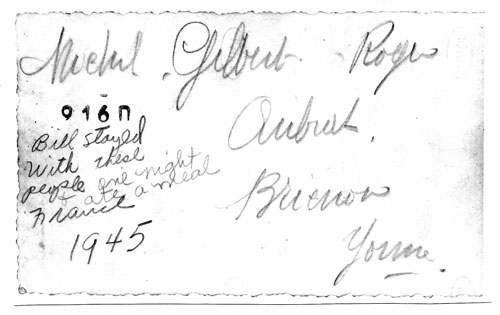 Michel Gilbert Roger
916П
Bill stayed
with these
people one night
& ate a meal
France
1945
Brienon
Yonne